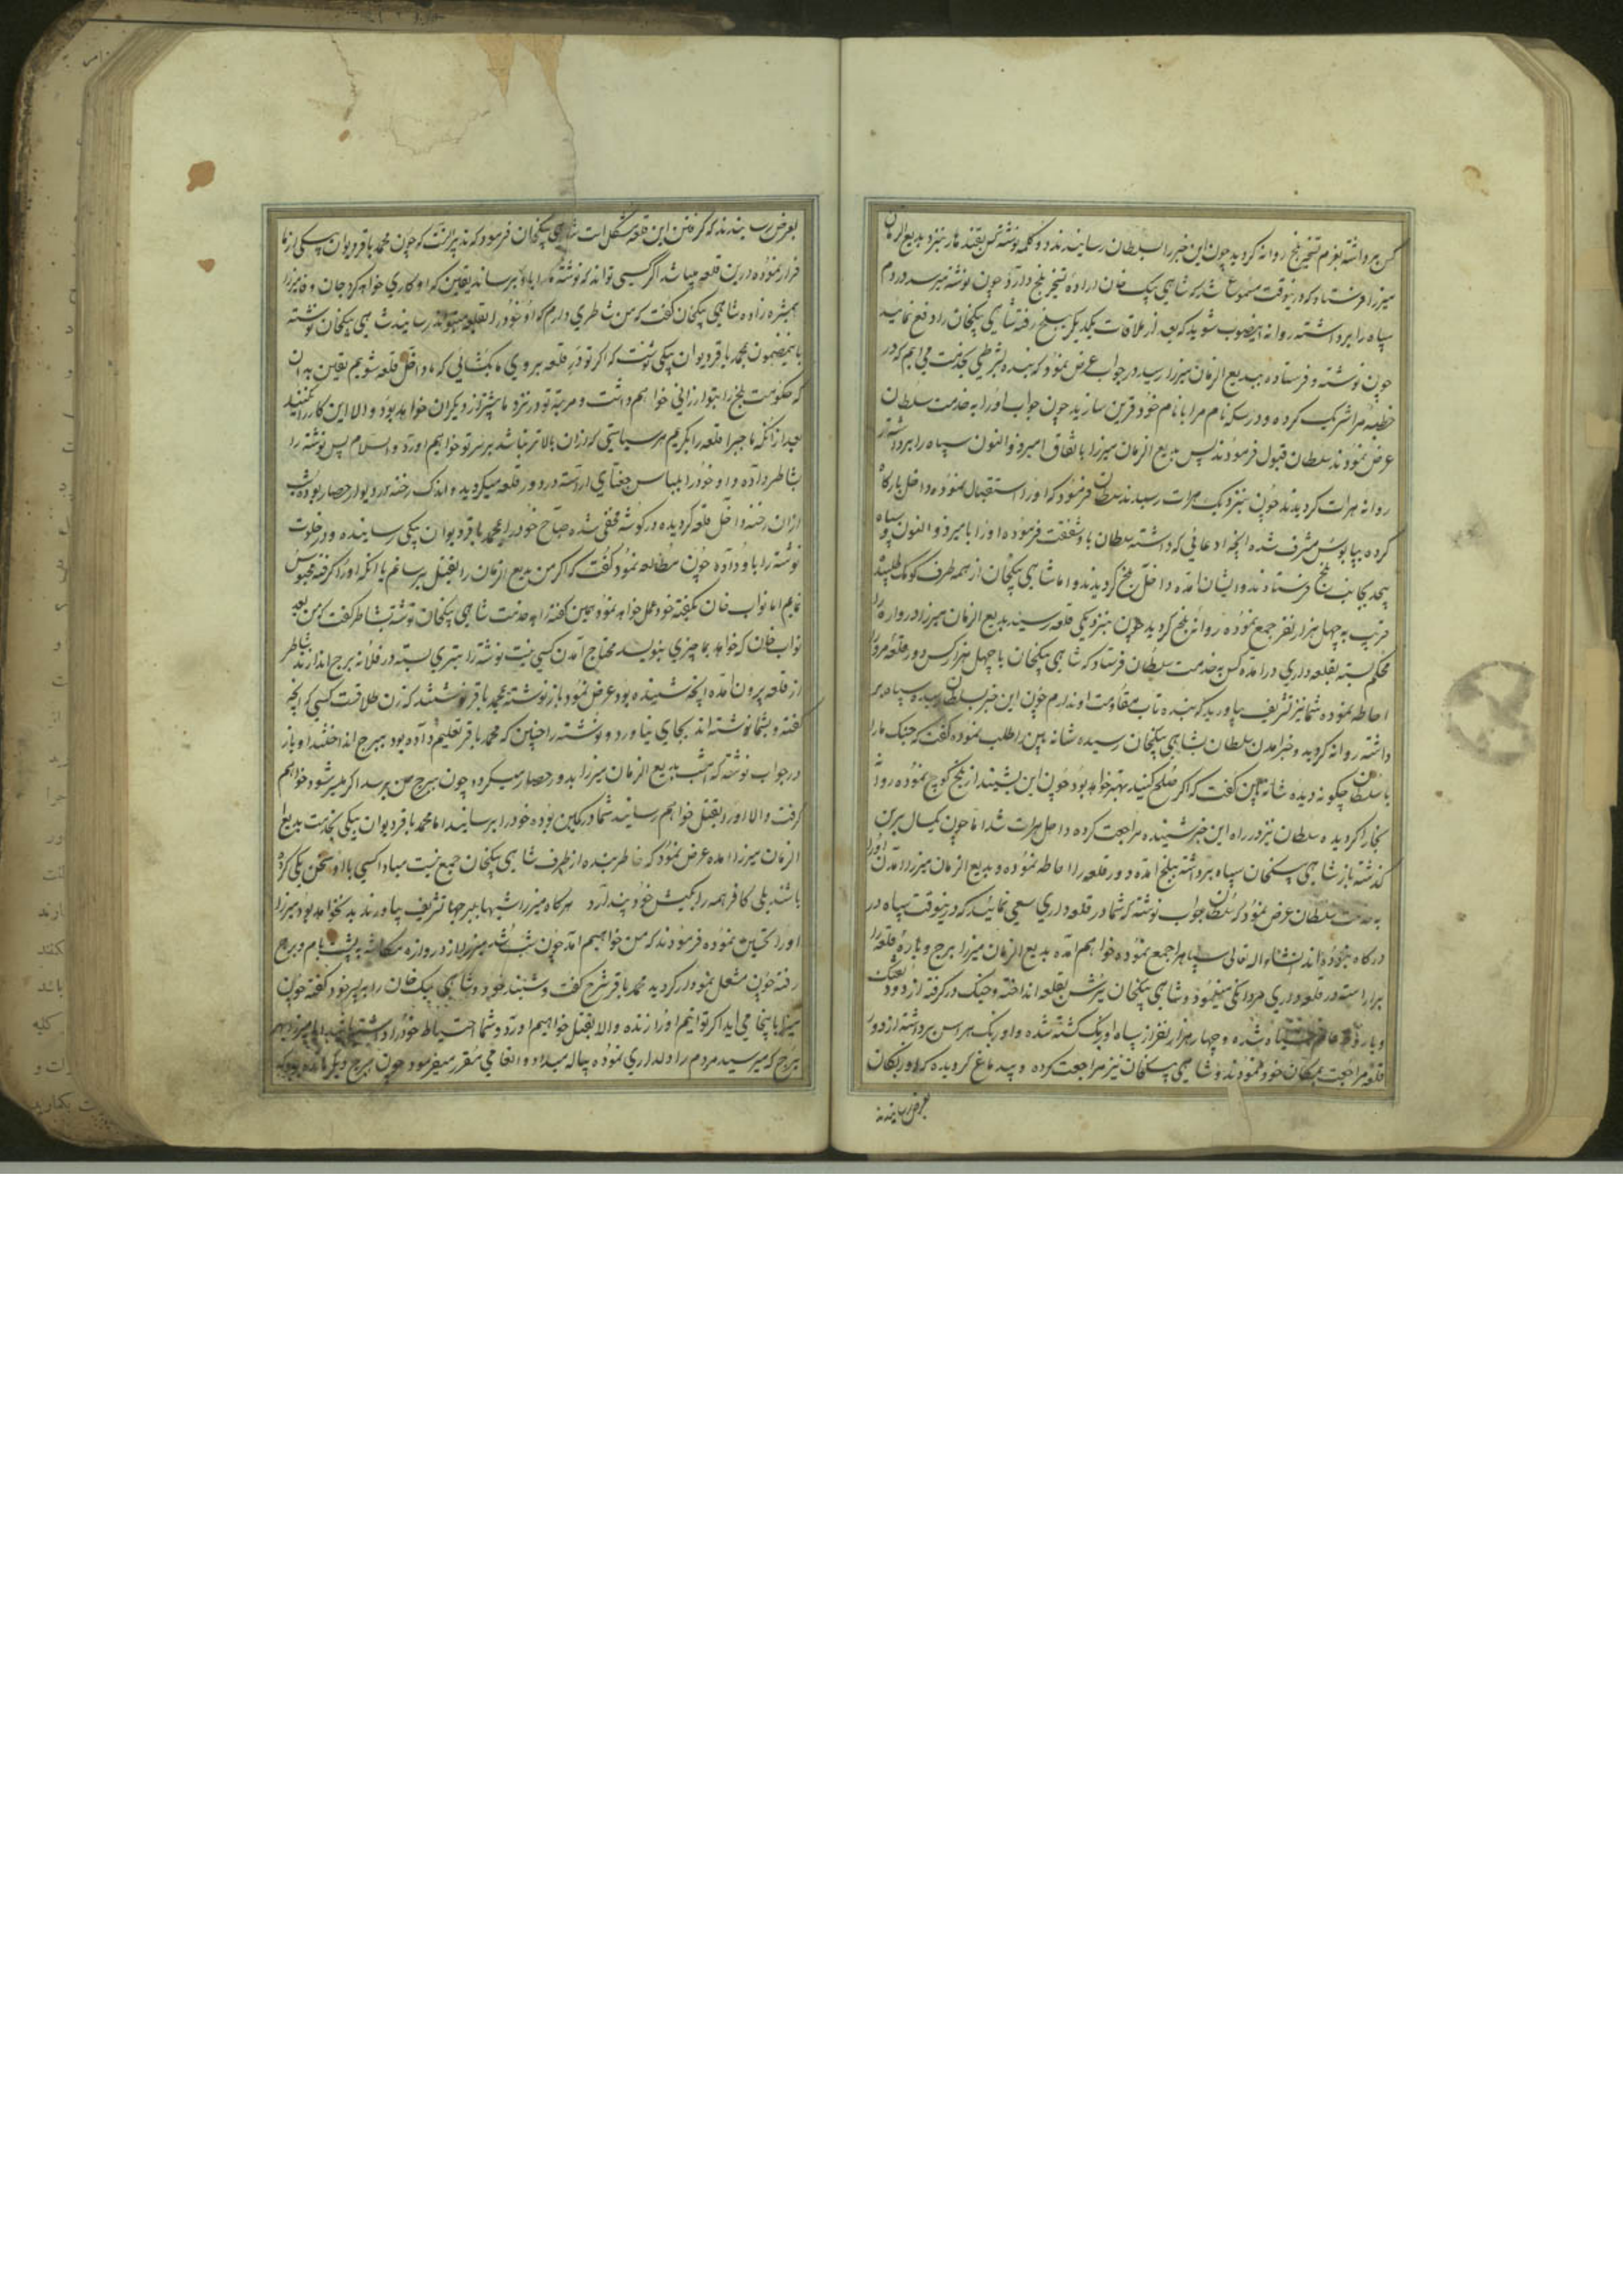 کس برداشته بعزم تسخیر بلخ روانه کردید چون این خبر را بسلطان رسانیدند دو کلمه نوشته کس بقندهار بنزد بدیع الزمان
میرزا فرستاد که درینوقت مسموع شد که شاهی بیک خان اراده تسخیر بلخ دارد چون نوشته میرسد در دم
سپاه را برداشته روانه اینصوب شوید که بعد از ملاقات یکدیکر ببلخ رفته شاهی بیکخان را دفع نمائید
چون نوشته و فرستاده ببدیع الزمان میرزا رسید در جواب عرض نمود که بنده بشرطی بخدمت می ایم که در
خطبه مرا شریک کرده و در سکه نام مرا با نام خود قرین سازید چون جواب او را به خدمت سلطان
عرض نمودند سلطان قبول فرمودند پس بدیع الزمان میرزا باتفاق امیر ذوالنون سپاه را برداشته
روانه هرات کردیدند چون بنزدیک هرات رسیدند سلطان فرمود که او را استقبال نموده داخل بارکاه
کرده بپابوس مشرف شده انچه ادعائی که داشته سلطان باو شفقت فرموده او را با میر ذوالنون و سپاه
بیحد بجانب بلخ فرستادند و ایشان امده داخل بلخ کردیدند و اما شاهی بیکخان از همه طرف کومک طلبیده
قریب به چهل هزار نفر جمع نموده روانه بلخ کردید چون بنزدیکی قلعه رسید بدیع الزمان میرزا دروازه را
محکم بسته بقلعه داری درامده کس به خدمت سلطان فرستاد که شاهی بیکخان با چهل هزار کس دور قلعه مرا
احاطه نموده شما نیز تشریف بیاورید که بنده تاب مقاومت او ندارم چون این خبر بسلطان رسیده سپاه بر
داشته روانه کردید و خبر امدن سلطان بشاهی بیکخان رسیده شانه بین را طلب نموده کفت که جنک ما را
با سلطان چکونه دیده شانه بین کفت که اکر صلح کنید بهتر خواهد بود چون این بشنید از بلخ کوچ نموده روانه
بخارا کردیده سلطان نیز در راه این خبر شنیده مراجعت کرده داخل هرات شد اما چون یکسال برین
کذشته باز شاهی بیکخان سپاه برداشته ببلخ امده دور قلعه را احاطه نموده و بدیع الزمان میرزا امدن او را
به خدمت سلطان عرض نمود که سلطان جواب نوشته که شما در قلعه داری سعی نمائید که درینوقت سپاه در
درکاه نبوده اند انشاء اله تعالی سپاهرا جمع نموده خواهم امده بدیع الزمان میرزا برج و باره قلعه را
براراسته در قلعه داری مردانکی مینمود و شاهی بیکخان یورش بقلعه انداخته و جنک درکرفته از دود تفنک
شده و چهار هزار نفر از سپاه اوزبک کشته شده و اوزبک هراس برداشته از دور
قلعه مراجعت بمکان خود نمودند و شاهی بیکخان نیز مراجعت کرده و بیدماغ کردیده که اوزبکان
بعرض رسانیدند
بعرض رسانیدند که کرفتن این قلعه مشکل است شاهی بیکخان فرمود که ندبیر انست که چون محمد باقر دیوان بیکی از ما
فرار نموده درین قلعه میباشد اکر کسی تواند که نوشته ما را باو برساند یقین که او کاری خواهد کرد جان وفا میرزا
همشیره زاده شاهی بیکخان کفت که من شاطری دارم که او خود را بقلعه میتواند رسانید شاهی بیکخان نوشته
باینمضمون بمحمد باقر دیوان بیکی نوشت که اکر تو در قلعه بروی ما بکشائی که ما داخل قلعه شویم یقین بدان
که حکومت بلخ را بتو ارزانی خواهم داشت و مرتبه تو در نزد ما بیشتر از دیکران خواهد بود و الا این کار را نکنید
بعد از انکه ما جبرا قلعه را بکریم هر سیاستی که ازان بالاتر نباشد بر سر تو خواهیم اورد والسلام پس نوشته را
بشاطر داده و او خود را بلباس جغتای اراسته در دور قلعه میکردید و اندک رخنه بر دیوار حصار بوده شب
ازان رخنه داخل قلعه کردیده در کوشه مخفی شده صباح خود را بمحمد باقر دیوان بیکی رسانیده و در خلوت
نوشته را باو داده چون مطالعه نمود کفت که اکر من بدیع الزمان را بقتل برسانم یا انکه او را کرفته محبوس
نمایم ایا نواب خان بکفته خود عمل خواهد نمود همین کفته را به خدمت شاهی بیکخان نوشته بشاطر کفت که من بعد
نواب خان که خواهد بما چیزی بنویسد محتاج آمدن کسی نیست نوشته را بتیری بسته در فلانه برج اندازند شاطر
از قلعه بیرون امده انچه شنیده بود عرض نمود باز نوشته بمحمد باقر نوشتند که زن طلاقست کسی که انچه
کفته و بشما نوشته اند بجای نیاورد و نوشته را چنانچه که محمد باقر تعلیم داده بود ببرج انداختند او باز
در جواب نوشته که امشب بدیع الزمان میرزا بدور حصار میکردد چون ببرج من برسد اکر میسر شود خواهم
کرفت والا او را بقتل خواهم رسانید شما در کمین بوده خود را برسانید اما محمد باقر دیوان بیکی بخدمت بدیع
الزمان میرزا امده عرض نمود که خاطر بنده از طرف شاهی بیکخان جمع نیست مبادا کسی با او سخن یکی کرده
باشند بلی کافر همه را بکیش خود پندارد هرکاه میرزا شبها ببرجها تشریف بیاورند بد نخواهد بود میرزا
او را تحسین نموده فرمودند که من خواهیم امد چون شب شد میرزا از دروازه عکاشه به پشت بام و برج
رفته چون مشعل نمودار کردید محمد باقر شرح کفت و شنید خود و شاهی بیک خان را به پسر خود کفته چون
میرزا باینجا می اید اکر توانیم او را زنده والا بقتل خواهیم اورد و شما احتیاط خود را داشته باشید اما میرزا بهر
برج که میرسید مردم را دلداری نموده پیاله میداد و انعامی مقرر میفرمود چون ببرج دیکر